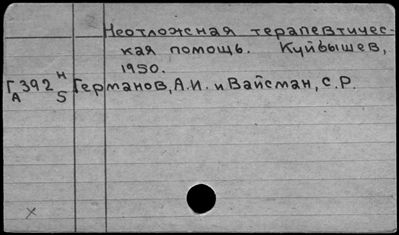 Неотложная терапевтичес-
кая помощь. Куйбышев,
1950.
Г392 Н Германов, А.И. и Вайсман, С.Р.
А 5
x